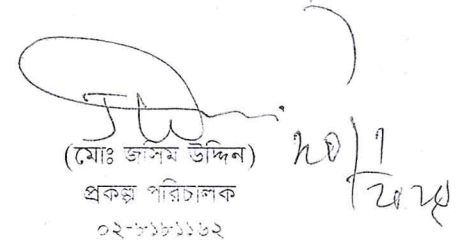 (মোঃ জসিম উদ্দিন)
প্রকল্প পরিচালক
০২-৮১৮১১৬২